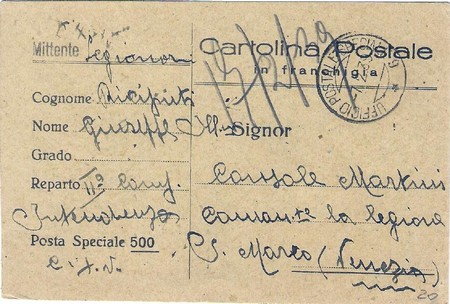 Mittente
Legionari
Cartolina Postale
in franchigia
Cognome
Nome Giuseppe
Ill. Signor
Grado
Reparto IIª Comp.
Console Martini
Intendenza
Comante la legione
Posta Speciale 500
S. Marco (Venezia)
C.T.V.
20
UFFICIO POSTALE SPECIALE 9